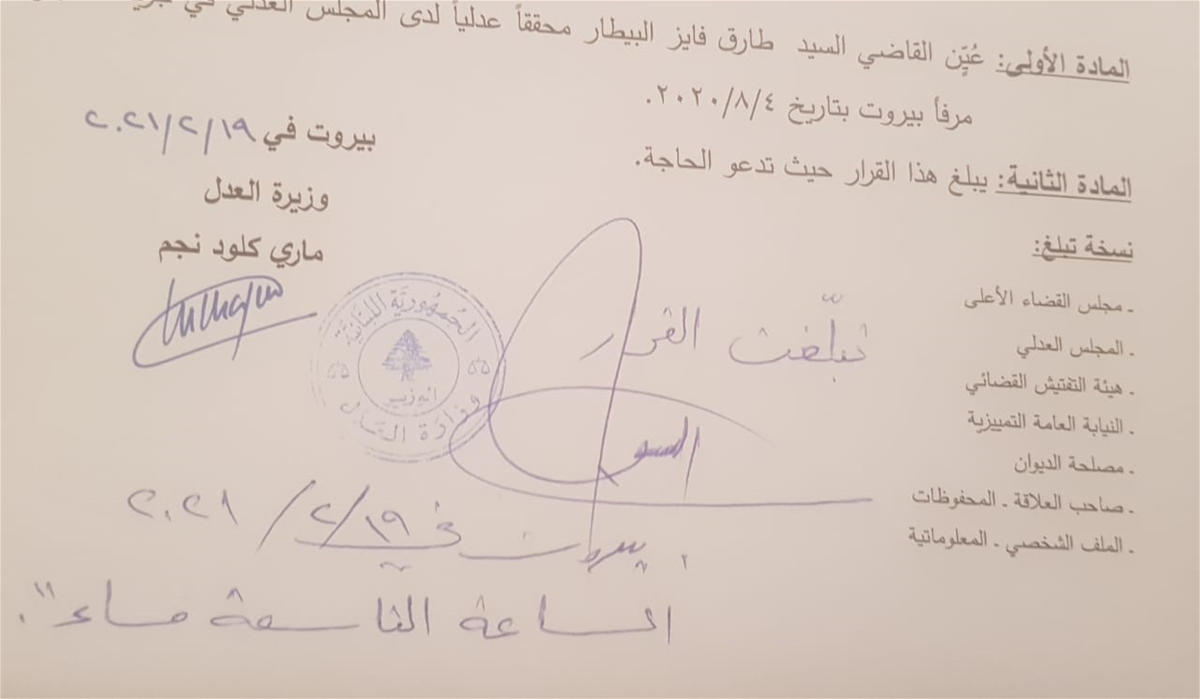 المادة الأولى: عُيِّن القاضي السيد طارق فايز البيطار محققاً عدلياً لدى المجلس العدلي في
مرفأ بيروت بتاريخ ٢٠٢٠/٨/٤.
المادة الثانية: يبلغ هذا القرار حيث تدعو الحاجة.
بيروت في ٢٠٢١/٢/١٩
وزيرة العدل
ماري كلود نجم
نسخة تبلغ:
ـ مجلس القضاء الأعلى
ـ المجلس العدلي
ـ هيئة التفتيش القضائي
ـ النيابة العامة التمييزية
ـ مصلحة الديوان
ـ صاحب العلاقة ـ المحفوظات
ـ الملف الشخصي ـ المعلوماتية
الجُمهُوريَّة اللبنَانيَّة
الوزير
وزارة العدل
تبلّغت القرار
بيروت في ٢٠٢١/٢/١٩
الساعة التاسعة مساءً".